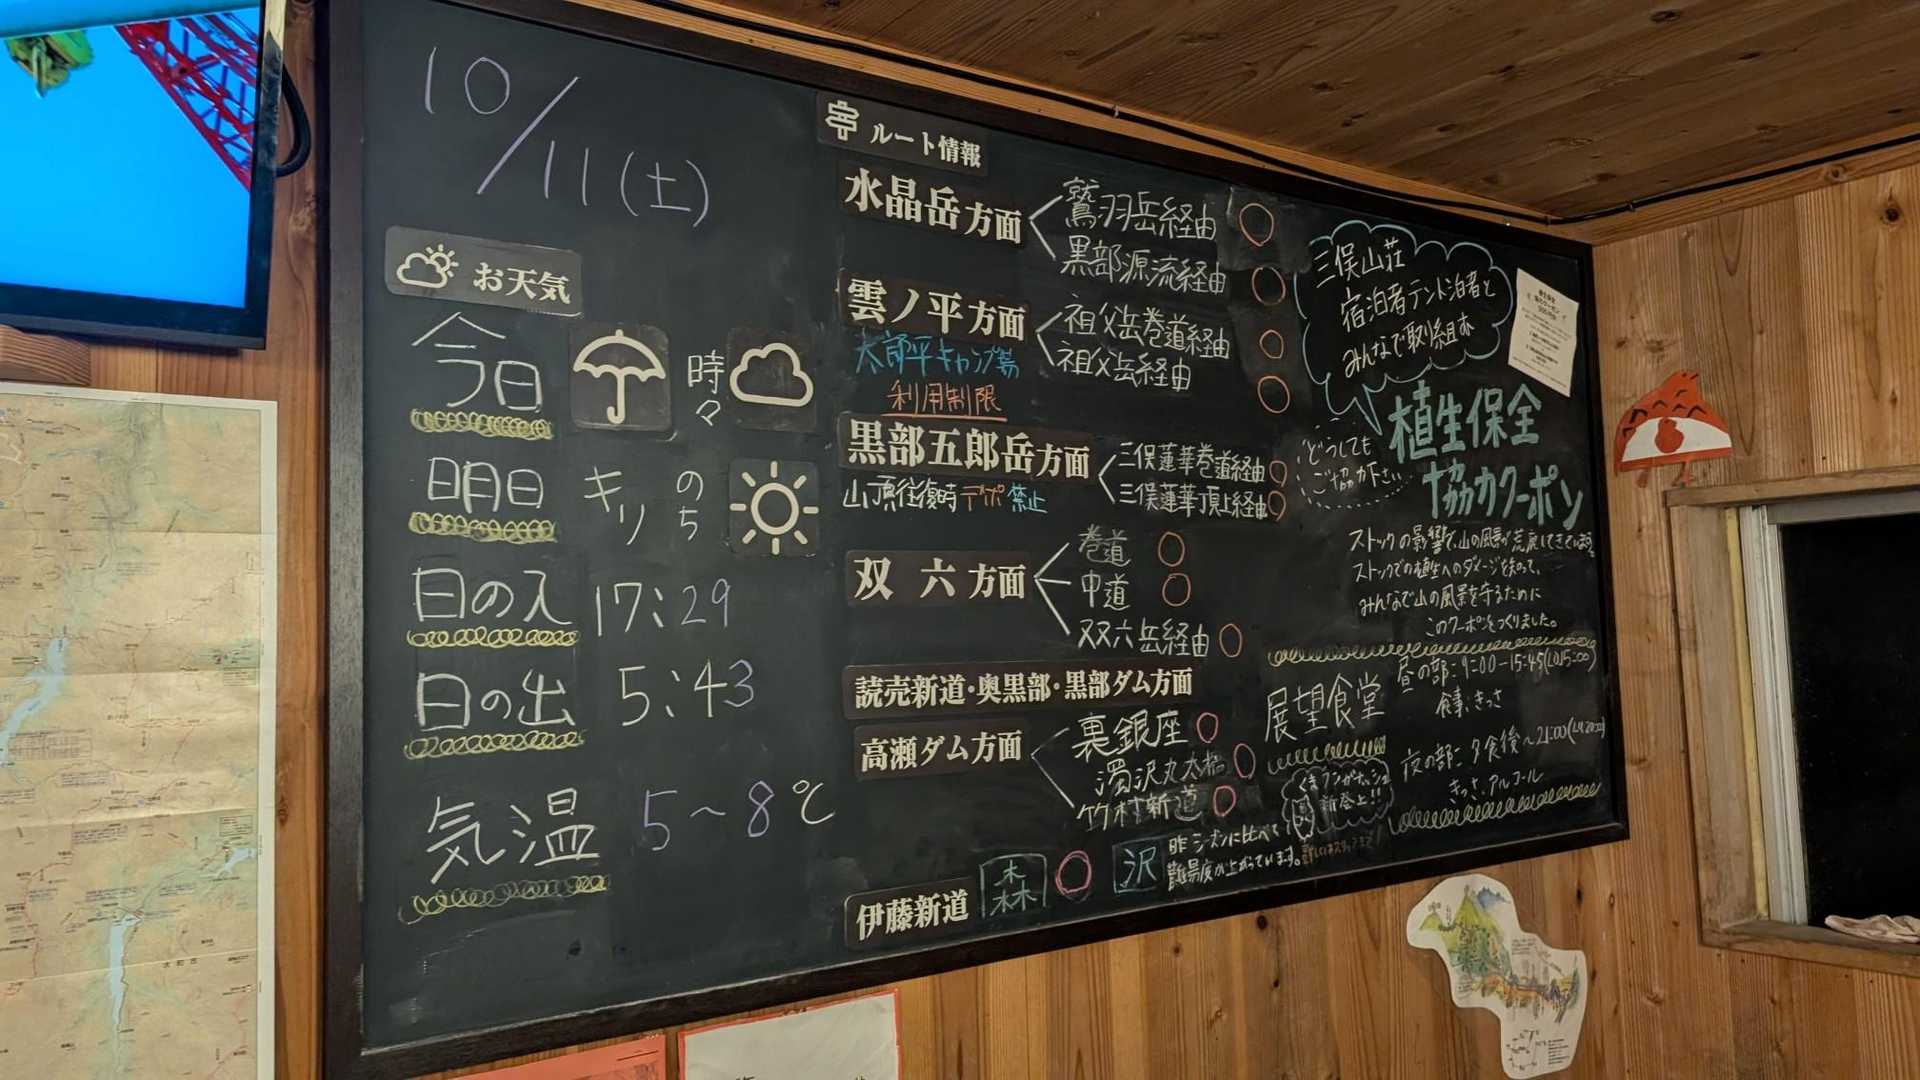 10/11(土)
お天気
今日 時々
明日 キリ のち
日の入 17:29
日の出 5:43
気温 5～8℃
ルート情報
水晶岳方面
鷲羽岳経由 ○
黒部源流経由 ○
雲ノ平方面
祖父岳巻道経由 ○
祖父岳経由 ○
太郎平キャンプ場
利用制限
黒部五郎岳方面
三俣蓮華巻道経由 ○
三俣蓮華頂上経由 ○
山頂往復時デポ禁止
双六方面
巻道 ○
中道 ○
双六岳経由 ○
読売新道・奥黒部・黒部ダム方面
高瀬ダム方面
裏銀座 ○
濁沢丸太橋 ○
竹村新道 ○
伊藤新道
森 ○
沢
昨シーズンに比べて
難易度が上がっています。
三俣山荘
宿泊者テント泊者と
みんなで取り組む
植生保全
協力クーポン
どうしても
ご協力下さい
ストックの影響で、山の風景が荒廃してきています。
ストックでの植生へのダメージを知って、
みんなで山の風景を守るために
このクーポンをつくりました。
展望食堂
昼の部：9:00-15:45(LO15:00)
食事、きっさ
夜の部：夕食後～21:00(LO20:00)
きっさ、アルコール
新登場!!